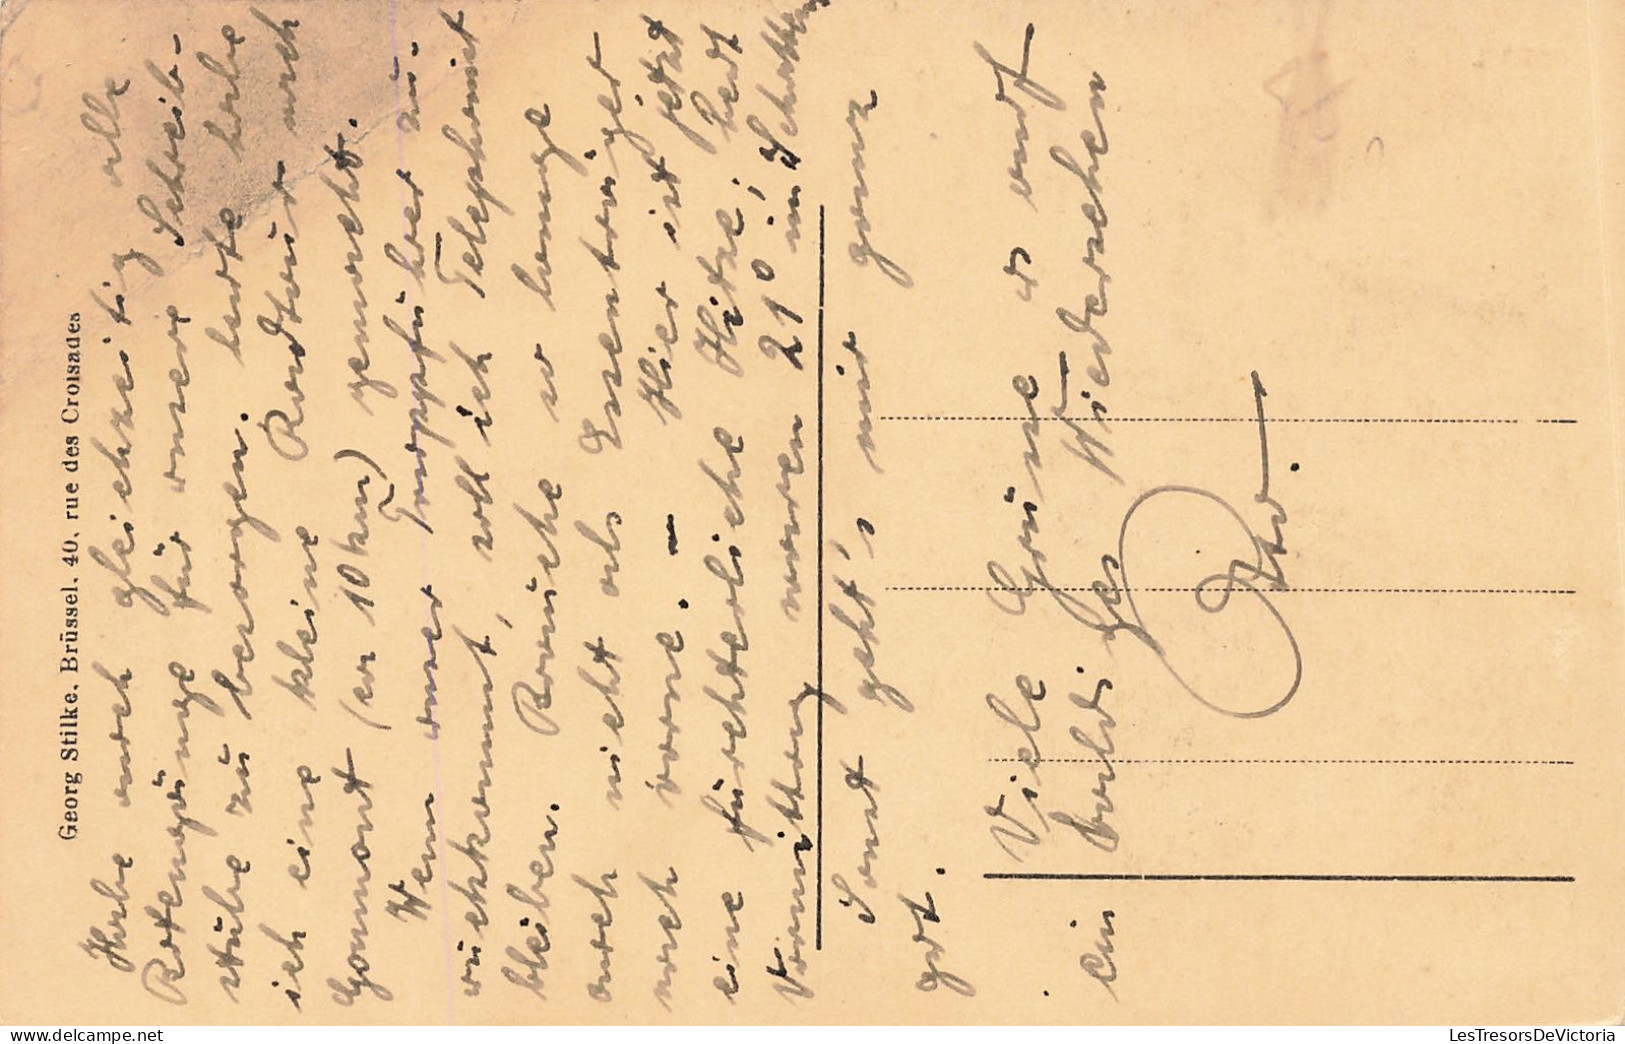 Georg Stilke, Brüssel, 40, rue des Croisades
Habe auch gleichzeitig alle
Botengänge für unsere Schreib-
stube zu besorgen. heute habe
ich eine kleine Radtour nach
(ca 10 km) gemacht.
Wenn unser Truppführer zu-
rückkommt, soll ich Telephonist
bleiben. Brauche so lange
auch nicht als
nach vorne. – Hier ist jetzt
eine fürchterliche Hitze; heut
Vormittag waren 21° im Schatten
Sonst geht's mir ganz
gut.
Viele Grüsse u auf
ein baldiges Wiedersehen
LesTresorsDeVictoria.com